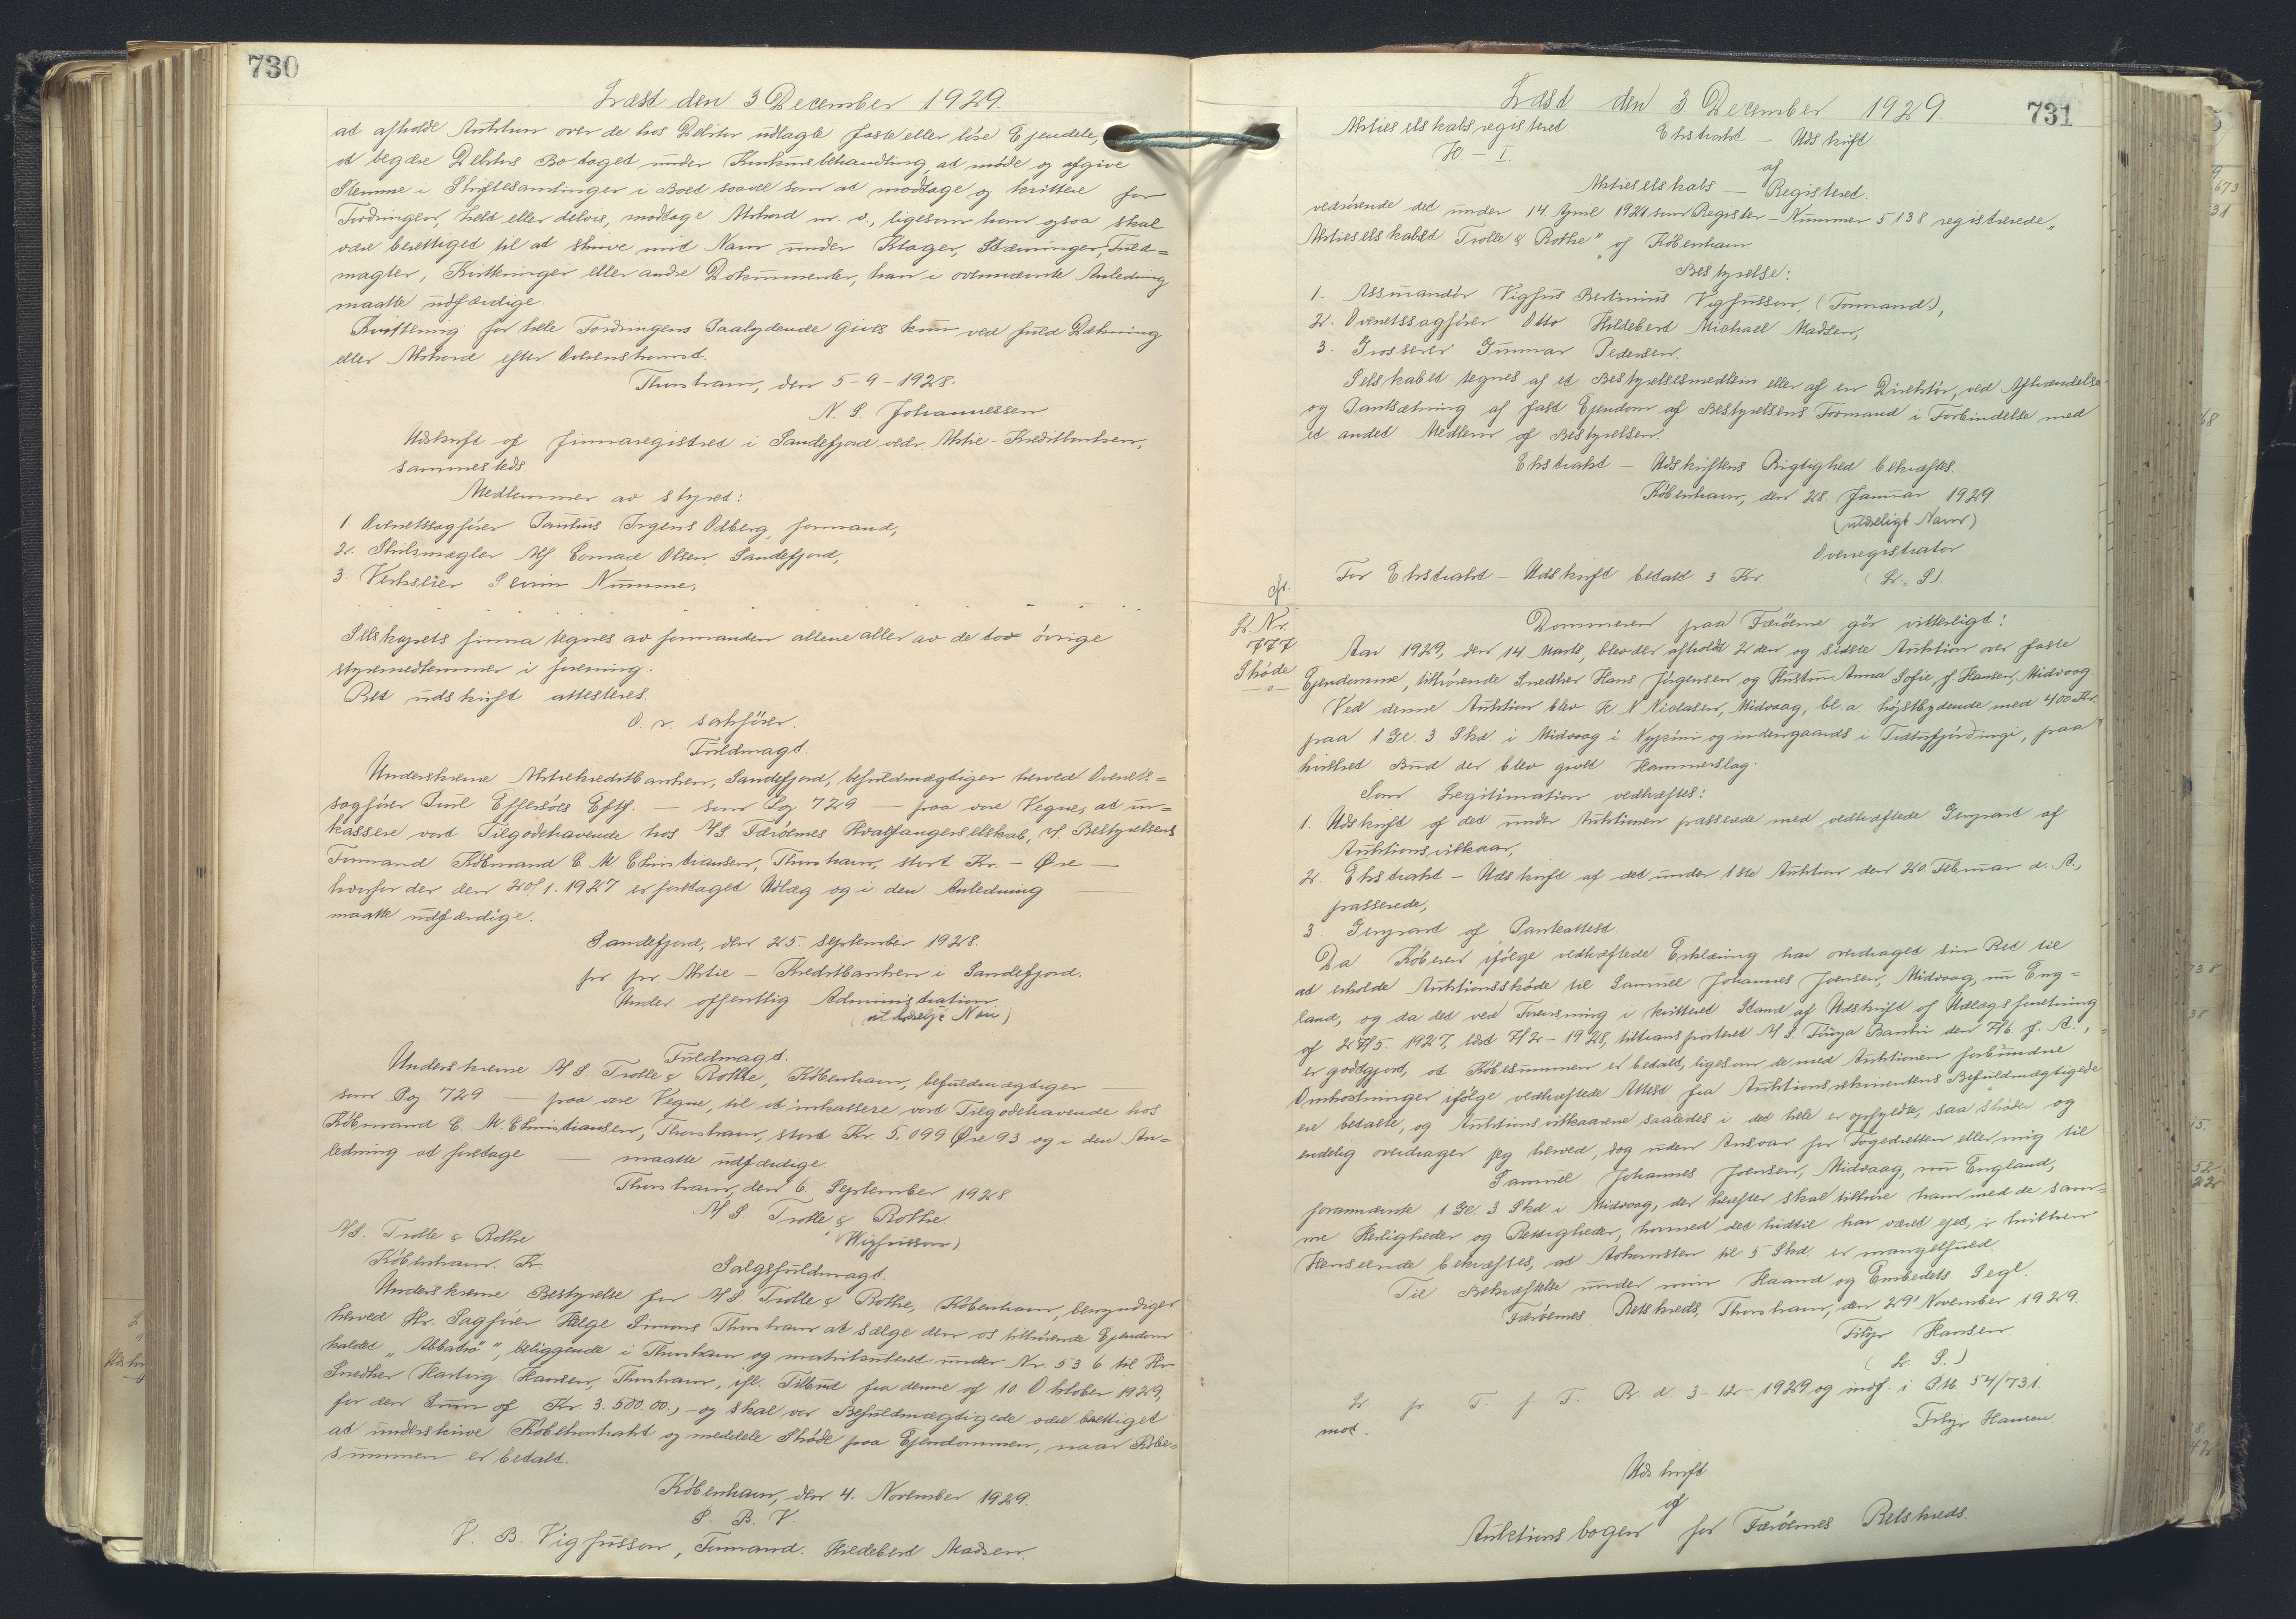 730
Læst den 3 December 1929.
at afholde Auktion over de hos Debitor udlagte faste eller løse Ejendele,
at begære Debitors Bo taget under Konkursbehandling, at møde og afgive
Stemme i Skiftesamlinger i Boet saavel som at modtage og kvittere for
Fordringen, helt eller delvis, modtage Akkord m. v., ligesom han ogsaa skal
være berettiget til at skrive mit Navn under Klager, Stævninger, Fuld=
magter, Kvitteringer eller andre Dokumenter, han i ovennævnte Anledning
maatte udfærdige.
Kvittering for hele Fordringens Paalydende gives kun ved fuld Dækning
eller Akkord efter Overenskomst.
Thorshavn, den 5-9-1928.
N. P. Johannessen.
Udskrift af firmaregistret i Sandefjord vedr. Aktie-Kreditbanken,
sammesteds.
Medlemmer av styret:
1. Overretssagfører Paulus Irgens Odberg, formand,
2. Skibsmægler Alf Conrad Olsen, Sandefjord,
3. Verkseier Severin Numme,
Selskapets firma tegnes av formanden allene eller av de to øvrige
styremedlemmer i forening.
Ret udskrift attesteres.
O. r. sakfører.
Fuldmagt.
Underskrevne Aktiekreditbanken, Sandefjord, befuldmægtiger herved Overrets=
sagfører Poul Effersøes Eftf. — som Pag 729 — paa vore Vegne, at in=
kassere vort Tilgodehavende hos A/S Færøernes Hvalfangerselskab, v/ Bestyrelsens
Formand Købmand C. M. Christiansen, Thorshavn, stort Kr. — Øre —
hvorfor der den 20/1. 1927 er foretaget Udlæg og i den Anledning —
maatte udfærdige.
Sandefjord, den 25. September 1928.
pr. pr. Aktie - Kreditbanken i Sandefjord.
Under offentlig Administration.
(ulæseligt Navn)
Fuldmagt.
Underskrevne A/S. Trolle & Rothe, København, befuldmægtiger —
som Pag 729 — paa vore Vegne, til at inkassere vort Tilgodehavende hos
Købmand C. M. Christiansen, Thorshavn, stort Kr. 5.099 Øre 93 og i den An=
ledning at foretage — maatte udfærdige.
Thorshavn, den 6. September 1928.
A/S Trolle & Rothe
(Wigfusson)
A/S. Trolle & Rothe
København. K.
Salgsfuldmagt.
Underskrevne Bestyrelse for A/S Trolle & Rothe, København, bemyndiger
herved Hr. Sagfører Helge Simony Thorshavn at sælge den os tilhørende Ejendom
kaldet „Abbatrø", beliggende i Thorshavn og matrikuleret under Nr. 536 til Hr.
Snedker Hartvig Hansen, Thorshavn, ifl. Tilbud fra denne af 10 Oktober 1929,
for den Sum af Kr. 3.500.00, - og skal vor Befuldmægtigede være berettiget
at underskrive Købekontrakt og meddele Skøde paa Ejendommen, naar Købe=
summen er betalt.
København, den 4. November 1929.
P. B. V
V. B. Vigfusson, Formand. Hildebert Madsen.
731
Læst den 3 December 1929.
Aktieselskabsregisteret.
Ekstrakt — Udskrift
H. - I.
af
Aktieselskabs — Registeret.
vedrørende det under 14 April 1921 som Register-Nummer 5138 registrerede „
Aktieselskabet Trolle & Rothe" af København
Bestyrelse:
1. Assurandør Vigfus Bertinius Vigfusson, (Formand),
2. Overretssagfører Otto Hildebert Michael Madsen,
3. Grosserer Gunnar Pedersen.
Selskabet tegnes af et Bestyrelsesmedlem eller af en Direktør, ved Afhændelse
og Pantsætning af fast Ejendom af Bestyrelsens Formand i Forbindelse med
et andet Medlem af Bestyrelsen.
Ekstrakt — Udskriftens Rigtighed bekræftes.
København, den 28 Januar 1929.
(ulæseligt Navn)
Overregistrator
For Ekstrakt - Udskrift betalt 3 Kr. (L. S).
L. Nr.
777
Skøde
Dommeren paa Færøerne gør vitterligt:
Aar 1929, den 14. Marts, blev der afholdt 2den og sidste Auktion over faste
Ejendomme, tilhørende Snedker Hans Jørgensen og Hustru Anna Sofie, f. Hansen, Midvaag.
Ved denne Auktion blev H. N. Niclasen, Midvaag, bl. a. højstbydende med 400 Kr.
paa 1 Gl. 3 Skd. i Midvaag i og indengaards i, paa
hvilket Bud der blev givet Hammerslag.
Som Legitimation vedhæftes:
1. Udskrift af det under Auktionen passerede med vedhæftede Genpart af
Auktionsvilkaar,
2. Ekstrakt - Udskrift af det under 1ste Auktion den 20. Februar d. A.,
passerede,
3. Genpart af Panteattest.
Da Køberen ifølge vedhæftede Erklæring har overdraget sin Ret til
at erholde Auktionsskøde til Samuel Johannes Joensen, Midvaag, nu Eng=
land, og da det ved Forevisning i kvitteret Stand af Udskrift af Udlægsforretning
af 24/5. 1927, læst 7/2-1928, tiltransporteret A/S. Føroya Banki den 7/6. f. A.,
er godtgjort, at Købesummen er betalt, ligesom de med Auktionen forbundne
Omkostninger ifølge vedhæftede Attest fra Auktionsrekvirentens Befuldmægtigede
ere betalte, og Auktionsvilkaarene saaledes i det hele er opfyldte, saa skøder og
endelig overdrager jeg herved, dog uden Ansvar for Fogedretten eller mig til
Samuel Johannes Joensen, Midvaag, nu England,
forannævnte 1 Gl 3 Skd i Midvaag, der herefter skal tilhøre ham med de sam=
me Herligheder og Rettigheder, hvormed det hidtil har været ejet, i hvilken
Henseende bekræftes, at Adkomsten til 5 Skd. er mangelfuld.
Til Bekræftelse under min Haand og Embedets Segl.
Færøernes Retskreds, Thorshavn, den 29' November 1929.
Hansen.
(L. S.)
L pr. T. f. F. R. d. 3-12-1929 og indf. i P.M. 54/731.
mot. Hansen.
Udskrift
af
Auktionsbogen for Færøernes Retskreds.